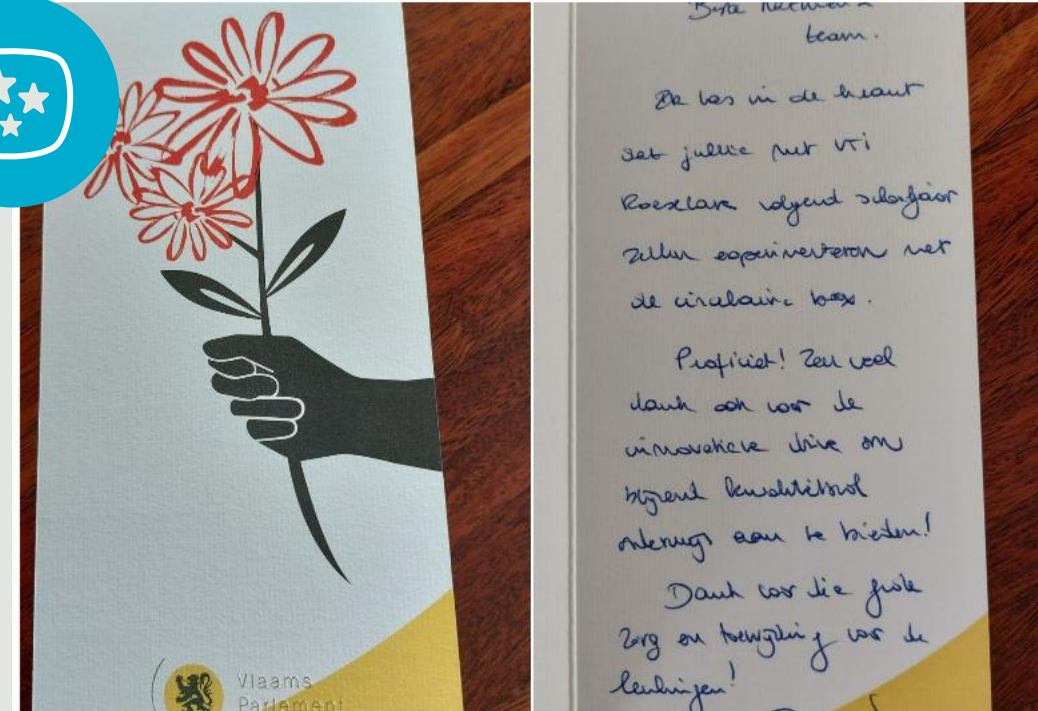 Vlaams
Parlement
Beste
team.
Ik las in de krant
dat jullie met VTI
Roeselare volgend schooljaar
zullen experimenteren met
de circulaire box.
Proficiat! Zeer veel
dank ook voor de
innovatieve drive om
blijvend kwaliteitsvol
onderwijs aan te bieden!
Dank voor die grote
zorg en toewijding voor de
leerlingen!